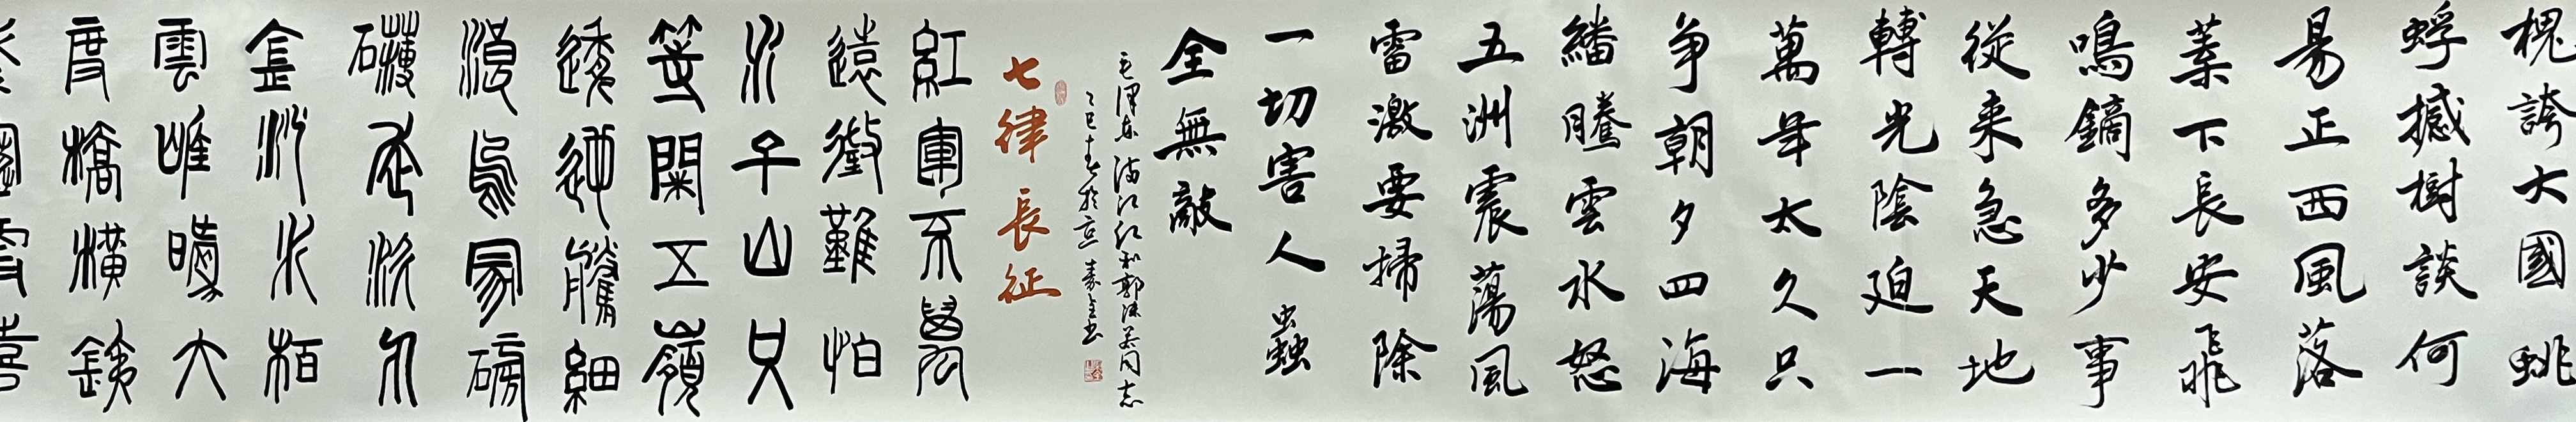 槐誇大國蚍
蜉撼樹談何
易正西風落
葉下長安飛
鳴鏑多少事
從来急天地
轉光陰迫一
萬年太久只
争朝夕四海
繙騰雲水怒
五洲震蕩風
雷激要掃除
一切害人蟲
全無敵
毛澤东滿江红和郭沫若同志
乙巳 於京
七律長征
紅軍不萬
遠徵難怕
水千山只
等閑五嶺
逶迤騰細
浪烏蒙磅
礴走泥丸
金沙水拍
雲 大
度橋橫鐵